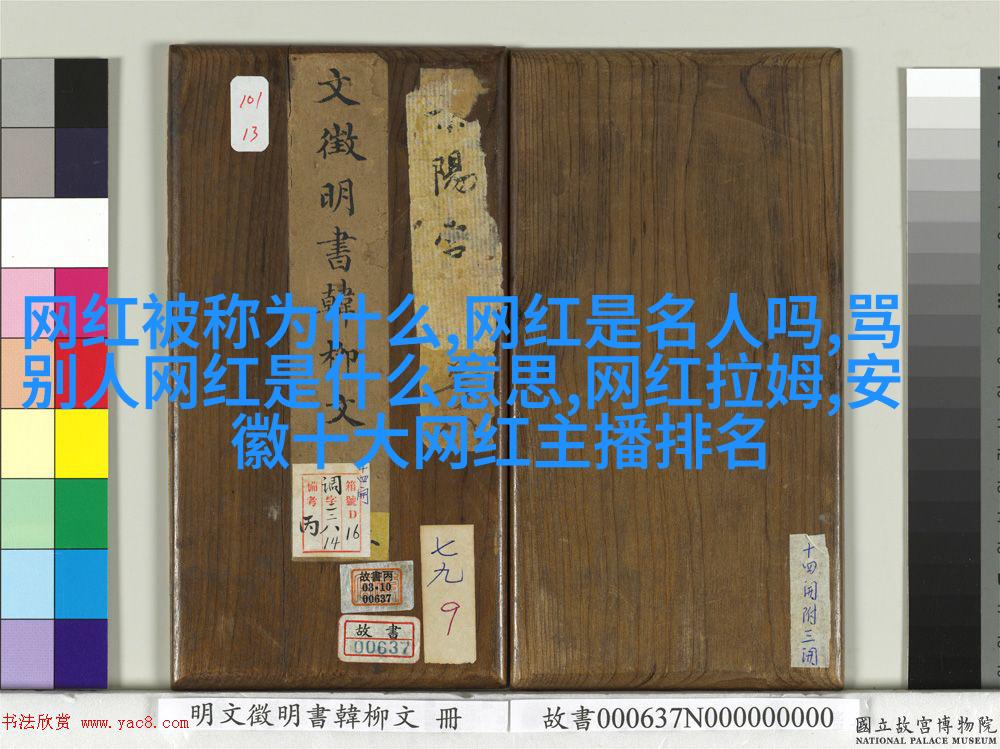 101
13
文徵明書韓柳文
陽宫
网红被称为什么,网红是名人吗,骂
别人网红是什么意思,网红拉姆,安
徽十大网红主播排名
十四開
箱號D16
調字三八14
備考丙
故書丙
03·10
00637
故書
00637
七九
9
十四開附三開
明文徵明書韓柳文 冊
故書000637N000000000
书法欣赏 www.yac8.com
國立故宮博物院
NATIONAL PALACE MUSEUM